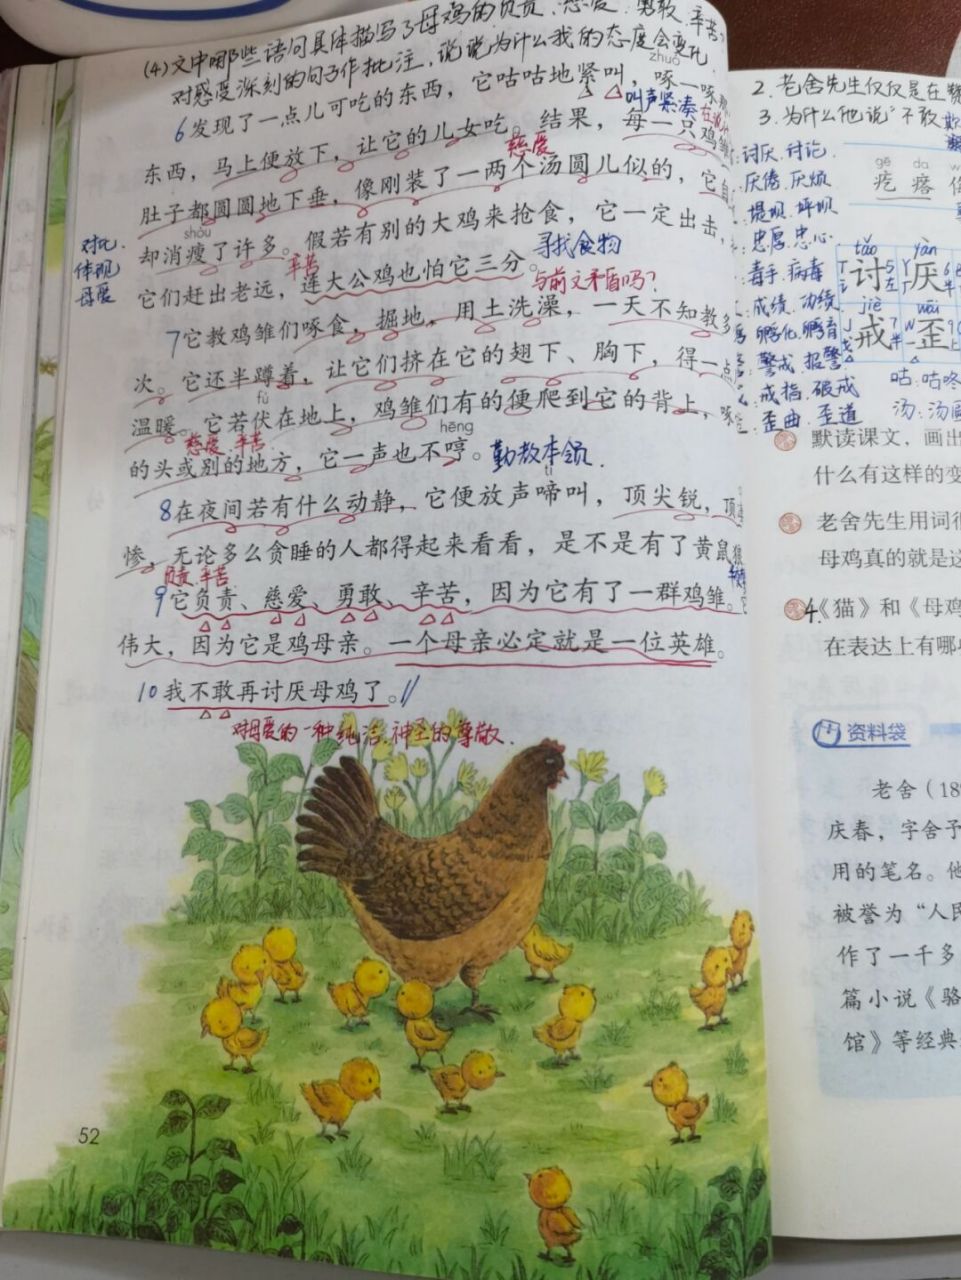 (4)文中哪些语句具体描写了母鸡的负责、慈爱、勇敢、辛苦?
对感受深刻的句子作批注,说说为什么我的态度会变化
zhuó
6发现了一点儿可吃的东西,它咕咕地紧叫,啄一啄那
叫声紧凑
东西,马上便放下,让它的儿女吃。结果,每一只鸡雏
慈爱
肚子都圆圆地下垂,像刚装了一两个汤圆儿似的,它自
shòu
却消瘦了许多。假若有别的大鸡来抢食,它一定出击,
对比.
体现
母爱
辛苦
寻找食物
它们赶出老远,连大公鸡也怕它三分。
与前文矛盾吗?
7它教鸡雏们啄食,掘地,用土洗澡,一天不知教多
次。它还半蹲着,让它们挤在它的翅下、胸下,得一点
fú
温暖。它若伏在地上,鸡雏们有的便爬到它的背上,啄
慈爱.辛苦
hēng
的头或别的地方,它一声也不哼。
勤教本领.
tí
8在夜间若有什么动静,它便放声啼叫,顶尖锐,顶
惨,无论多么贪睡的人都得起来看看,是不是有了黄鼠狼
负责.辛苦
9它负责、慈爱、勇敢、辛苦,因为它有了一群鸡雏。
伟大,因为它是鸡母亲。一个母亲必定就是一位英雄。
10我不敢再讨厌母鸡了。
对母爱的一种纯洁.神圣的尊敬.
52
2.老舍先生仅仅是在
3.为什么他说"不敢
讨厌.讨论
厌倦.厌烦
堤坝.坪坝
忠厚.忠心
毒手.病毒
成绩.功绩
孵化.孵育
警戒.报警
戒指.破戒
歪曲.歪道
gē da
疙瘩
tǎo yàn
讨厌
jiè wāi
戒歪
咕:咕咚
汤:汤圆
默读课文,画出
什么有这样的变
老舍先生用词很
母鸡真的就是这
4.《猫》和《母鸡
在表达上有哪些
资料袋
老舍(189
庆春,字舍予
用的笔名。他
被誉为“人民
作了一千多
篇小说《骆
馆》等经典